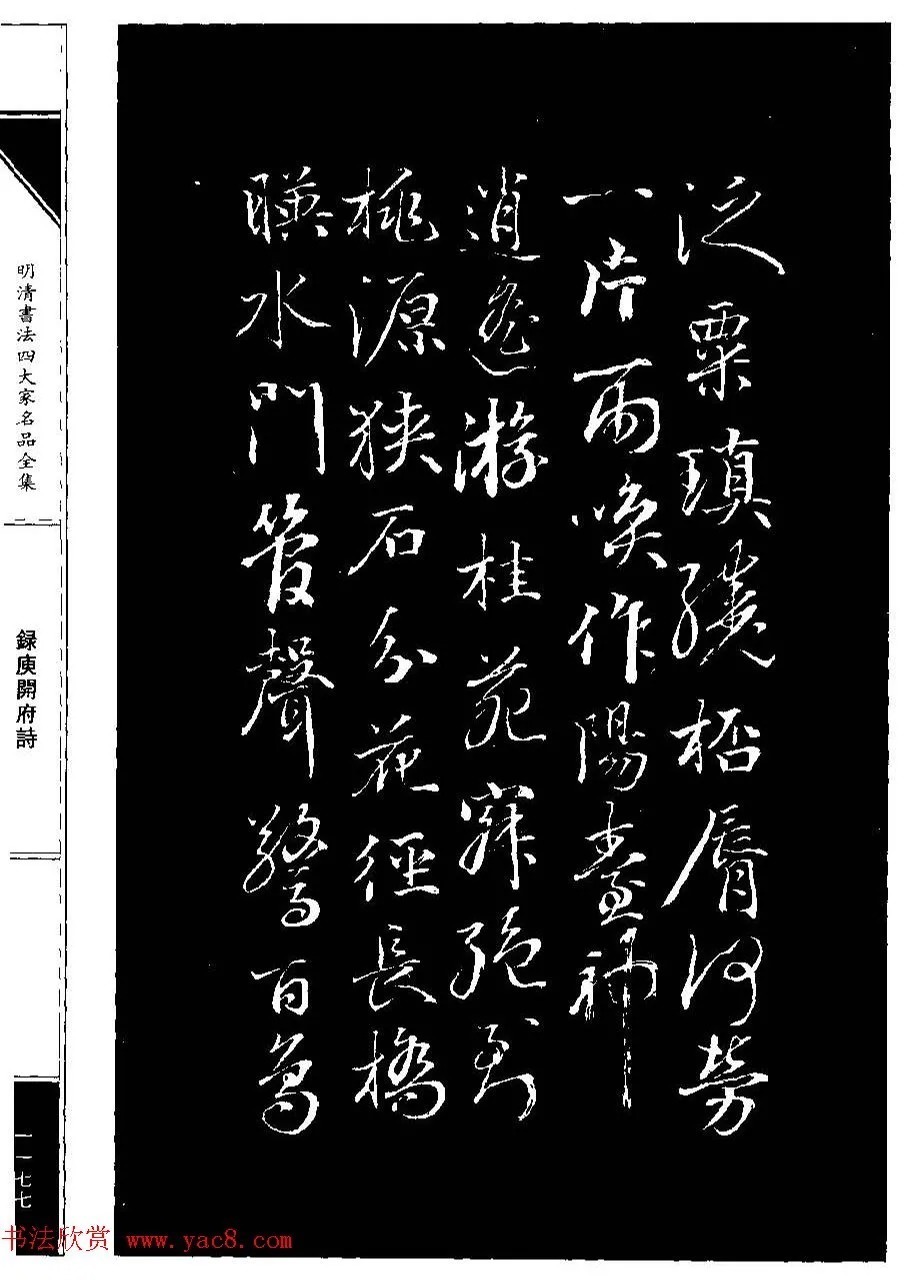 泛粟瑱繞桮脣何勞
一片雨喚作陽臺神
逍遙游桂苑寂絕到
桃源狹石分花徑長橋
暎水門管聲驚百鳥
明清書法四大家名品全集
録庾開府詩
一一七七
书法欣赏 www.yac8.com